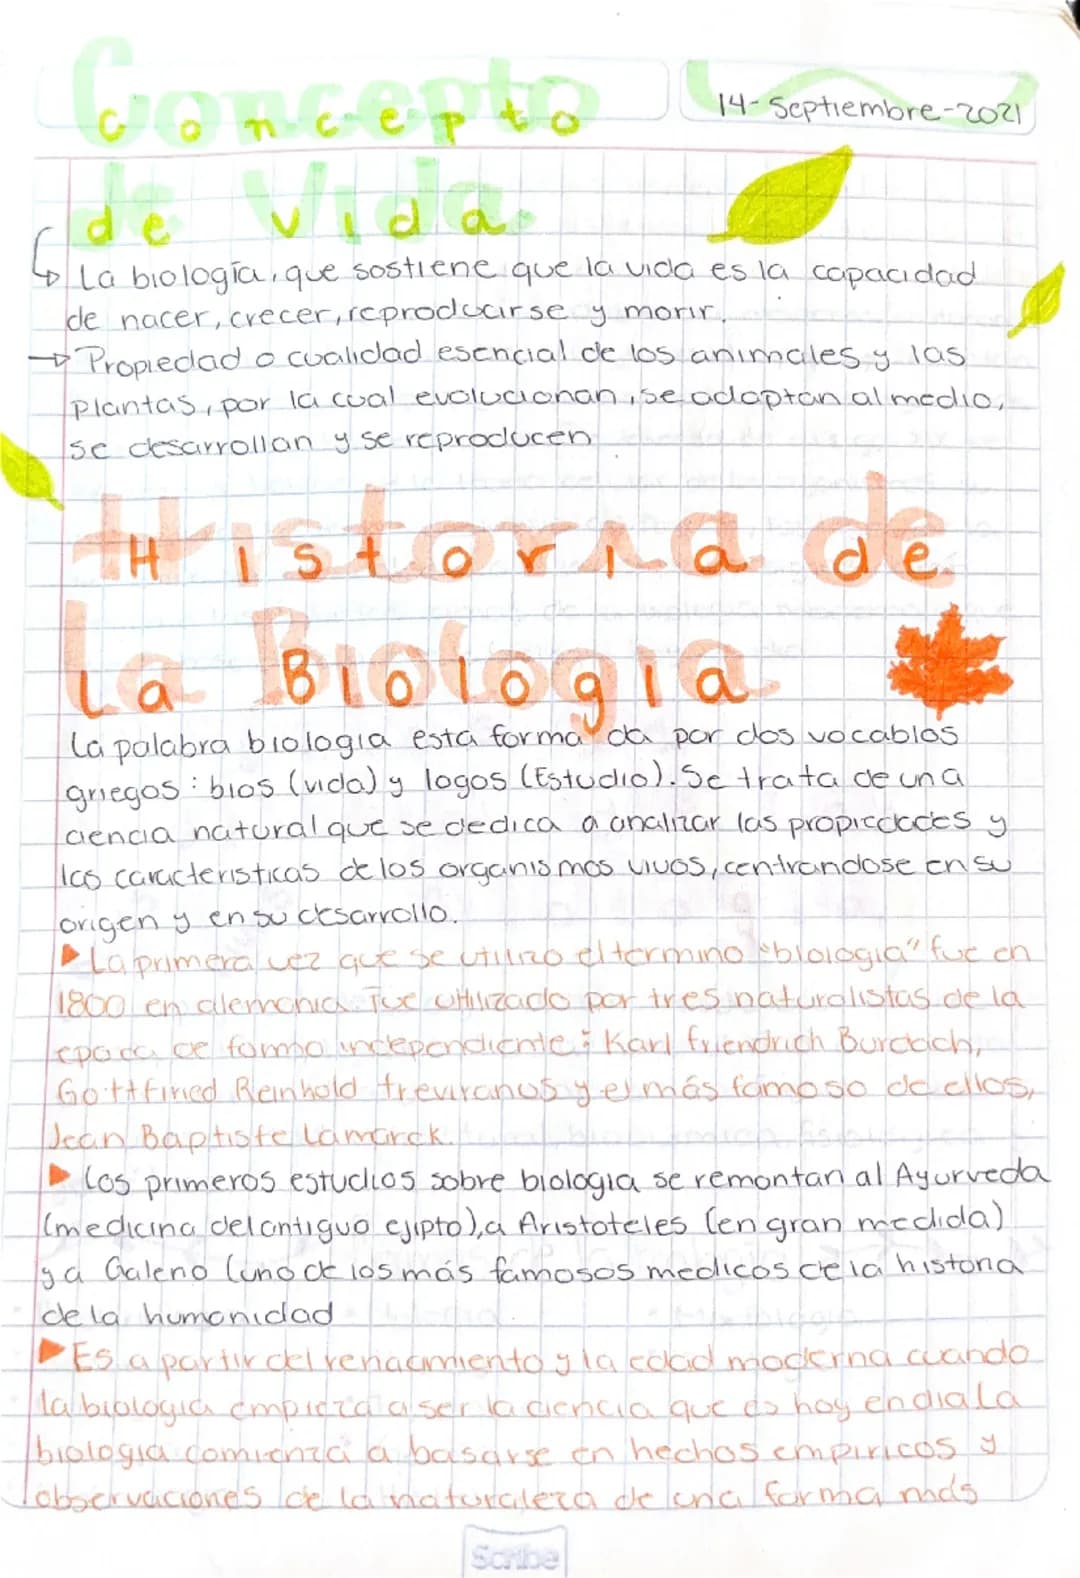 Concepto
14-Septiembre-2021
de Vida
La biología, que sostiene que la vida es la capacidad
de nacer, crecer, reproducirse y morir.
Propiedad o cualidad esencial de los animales y las
plantas, por la cual evolucionan, se adaptan al medio,
se desarrollan y se reproducen
Historia de
la Biologia
La palabra biologia esta forma da por dos vocablos
griegos: bios (vida) y logos (Estudio). Se trata de una
ciencia natural que se dedica a analizar las propiedades y
las caracteristicas de los organismos vivos, centrandose en su
origen y en su desarrollo.
La primera vez que se utilizo el termino "biologia" fue en
1800 en alemania. Fue utilizado por tres naturalistas de la
epoca de forma independiente: Karl friendrich Burdach,
Gottfried Reinhold treviranus y el más famoso de ellos,
Jean Baptiste Lamarck.
Los primeros estudios sobre biologia se remontan al Ayurveda
(medicina del antiguo ejipto), a Aristoteles (en gran medida)
y a Galeno (uno de los más famosos medicos de la historia
de la humanidad
Es a partir del renacimiento y la edad moderna cuando
la biologia empieza a ser la ciencia que es hoy en dia la
biologia comienza a basarse en hechos empiricos y
observaciones de la naturaleza de una forma más
Scribe